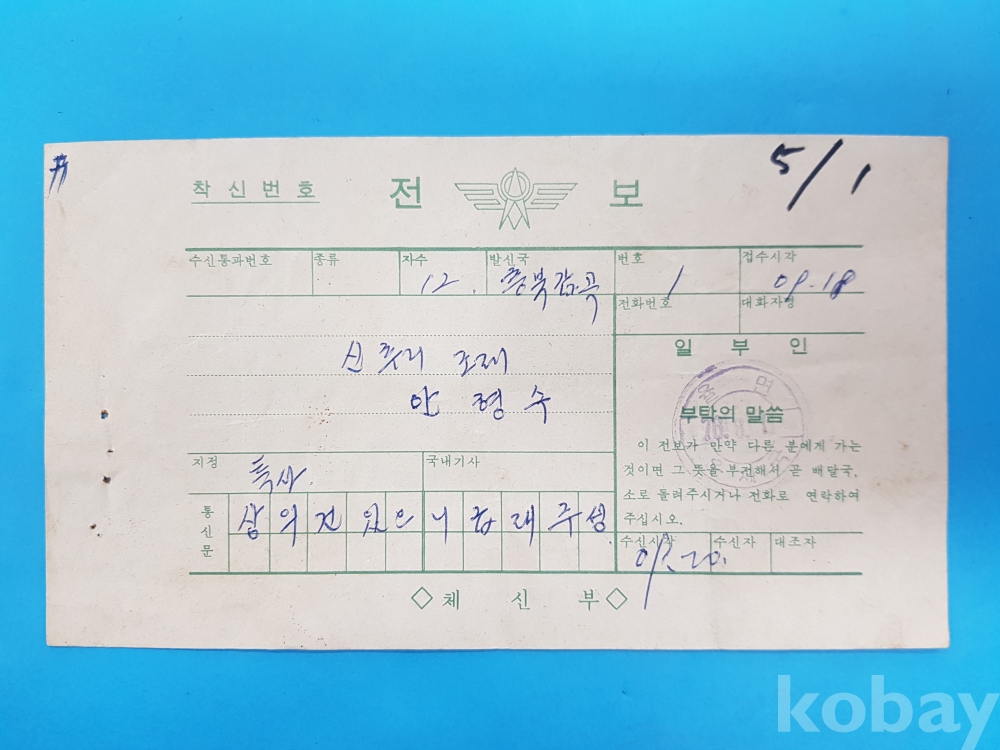 5/1
착신번호 전 보
수신통과번호 종류 자수 발신국 번호 접수시각
12. 충북감곡 1 09.18
전화번호 대화자명
일 부 인
신추리
안 형 수
부탁의 말씀
이 전보가 만약 다른 분에게 가는
것이면 그 뜻을 부전해서 곧 배달국,
소로 돌려주시거나 전화로 연락하여
주십시오.
지정 국내기사
특사.
통신문
상의건있으니급래주성.
수신시각 수신자 대조자
20.
◇체 신 부◇
kobay